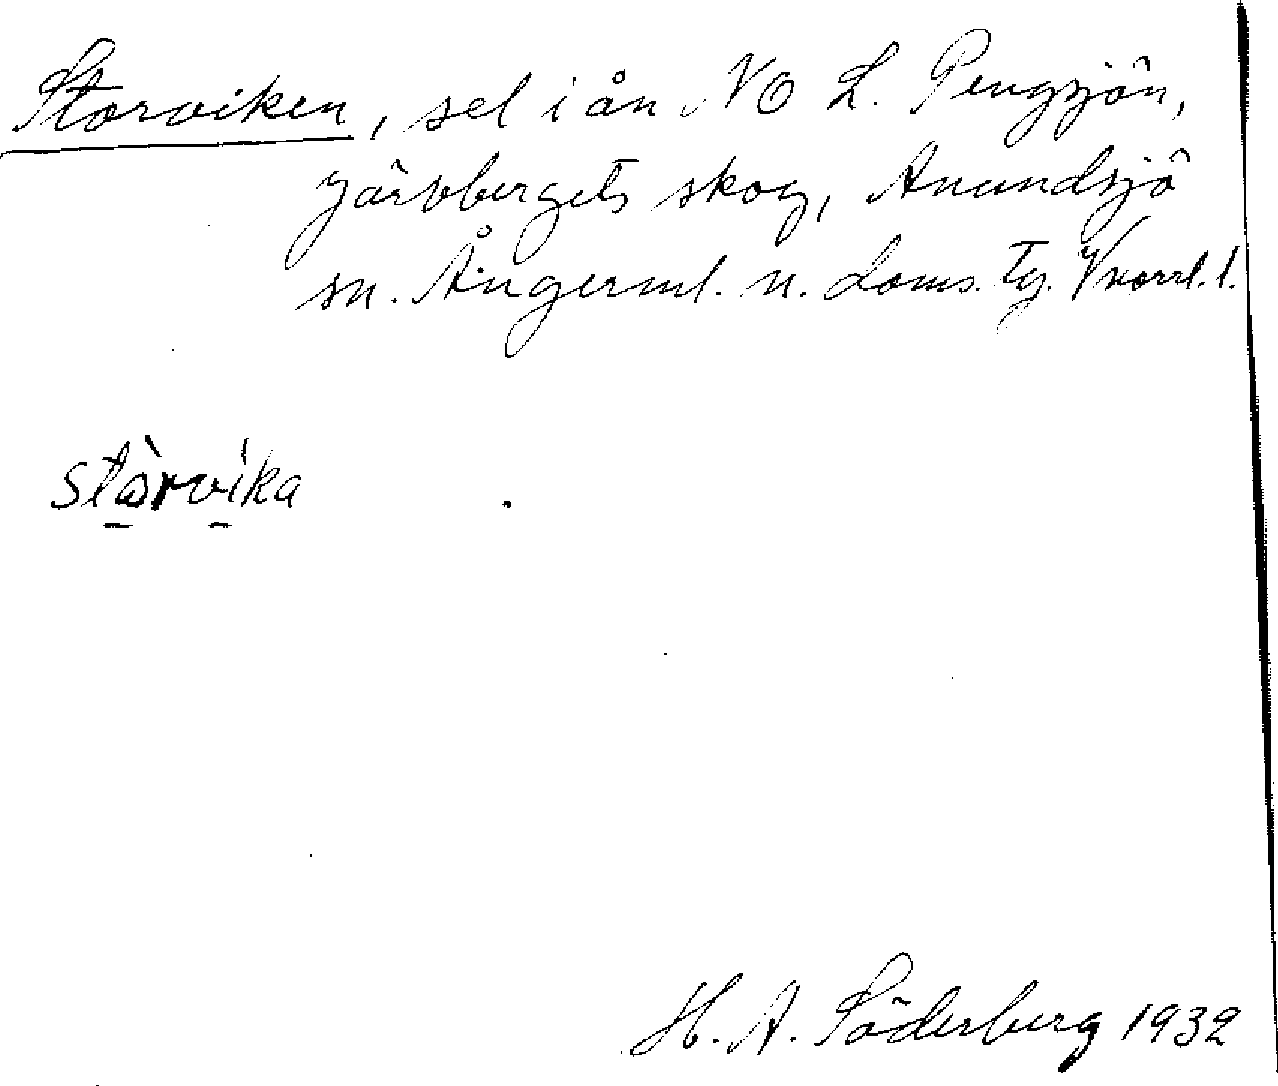 Storviken, sel i ån NO L. Pengsjön,
Järvbergets skog, Anundsjö
sn. Ångerml. n. doms. tg. Vnorrl. l.
stòrvika
H. A. Söderberg 1932